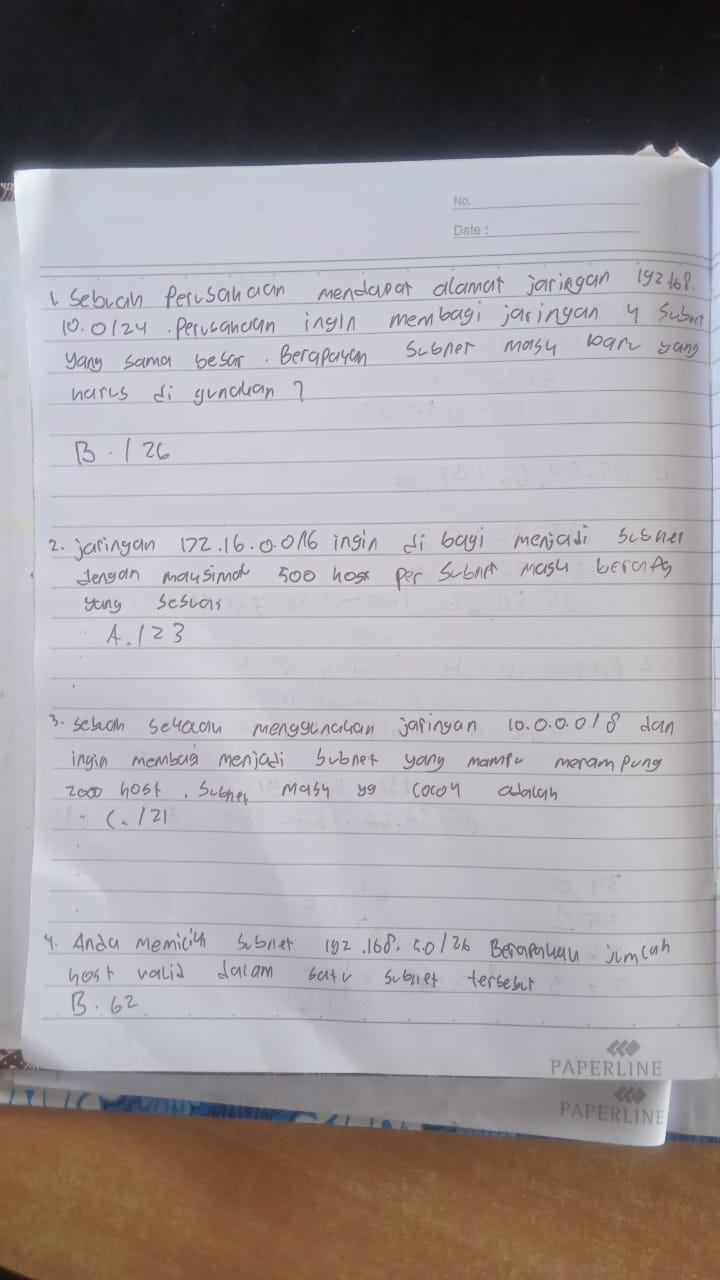 No.
Date :
1. Sebuah Perusahaan mendapat alamat jaringan 192.168.
10.0/24. Perusahaan ingin membagi jaringan 4 Subnet
yang sama besar. Berapakah Subnet mask baru yang
harus di gunakan ?
B. /26
2. jaringan 172.16.0.0/16 ingin di bagi menjadi subnet
dengan maksimal 500 host per subnet mask berapa
yang sesuai
A. /23
3. sebuah sekolah menggunakan jaringan 10.0.0.0/8 dan
ingin membagi menjadi subnet yang mampu merampung
2000 host. Subnet mask yg cocok adalah
C. /21
4. Anda memilik subnet 192.168.5.0/26 Berapakah jumlah
host valid dalam satu subnet tersebut
B. 62
PAPERLINE
PAPERLINE